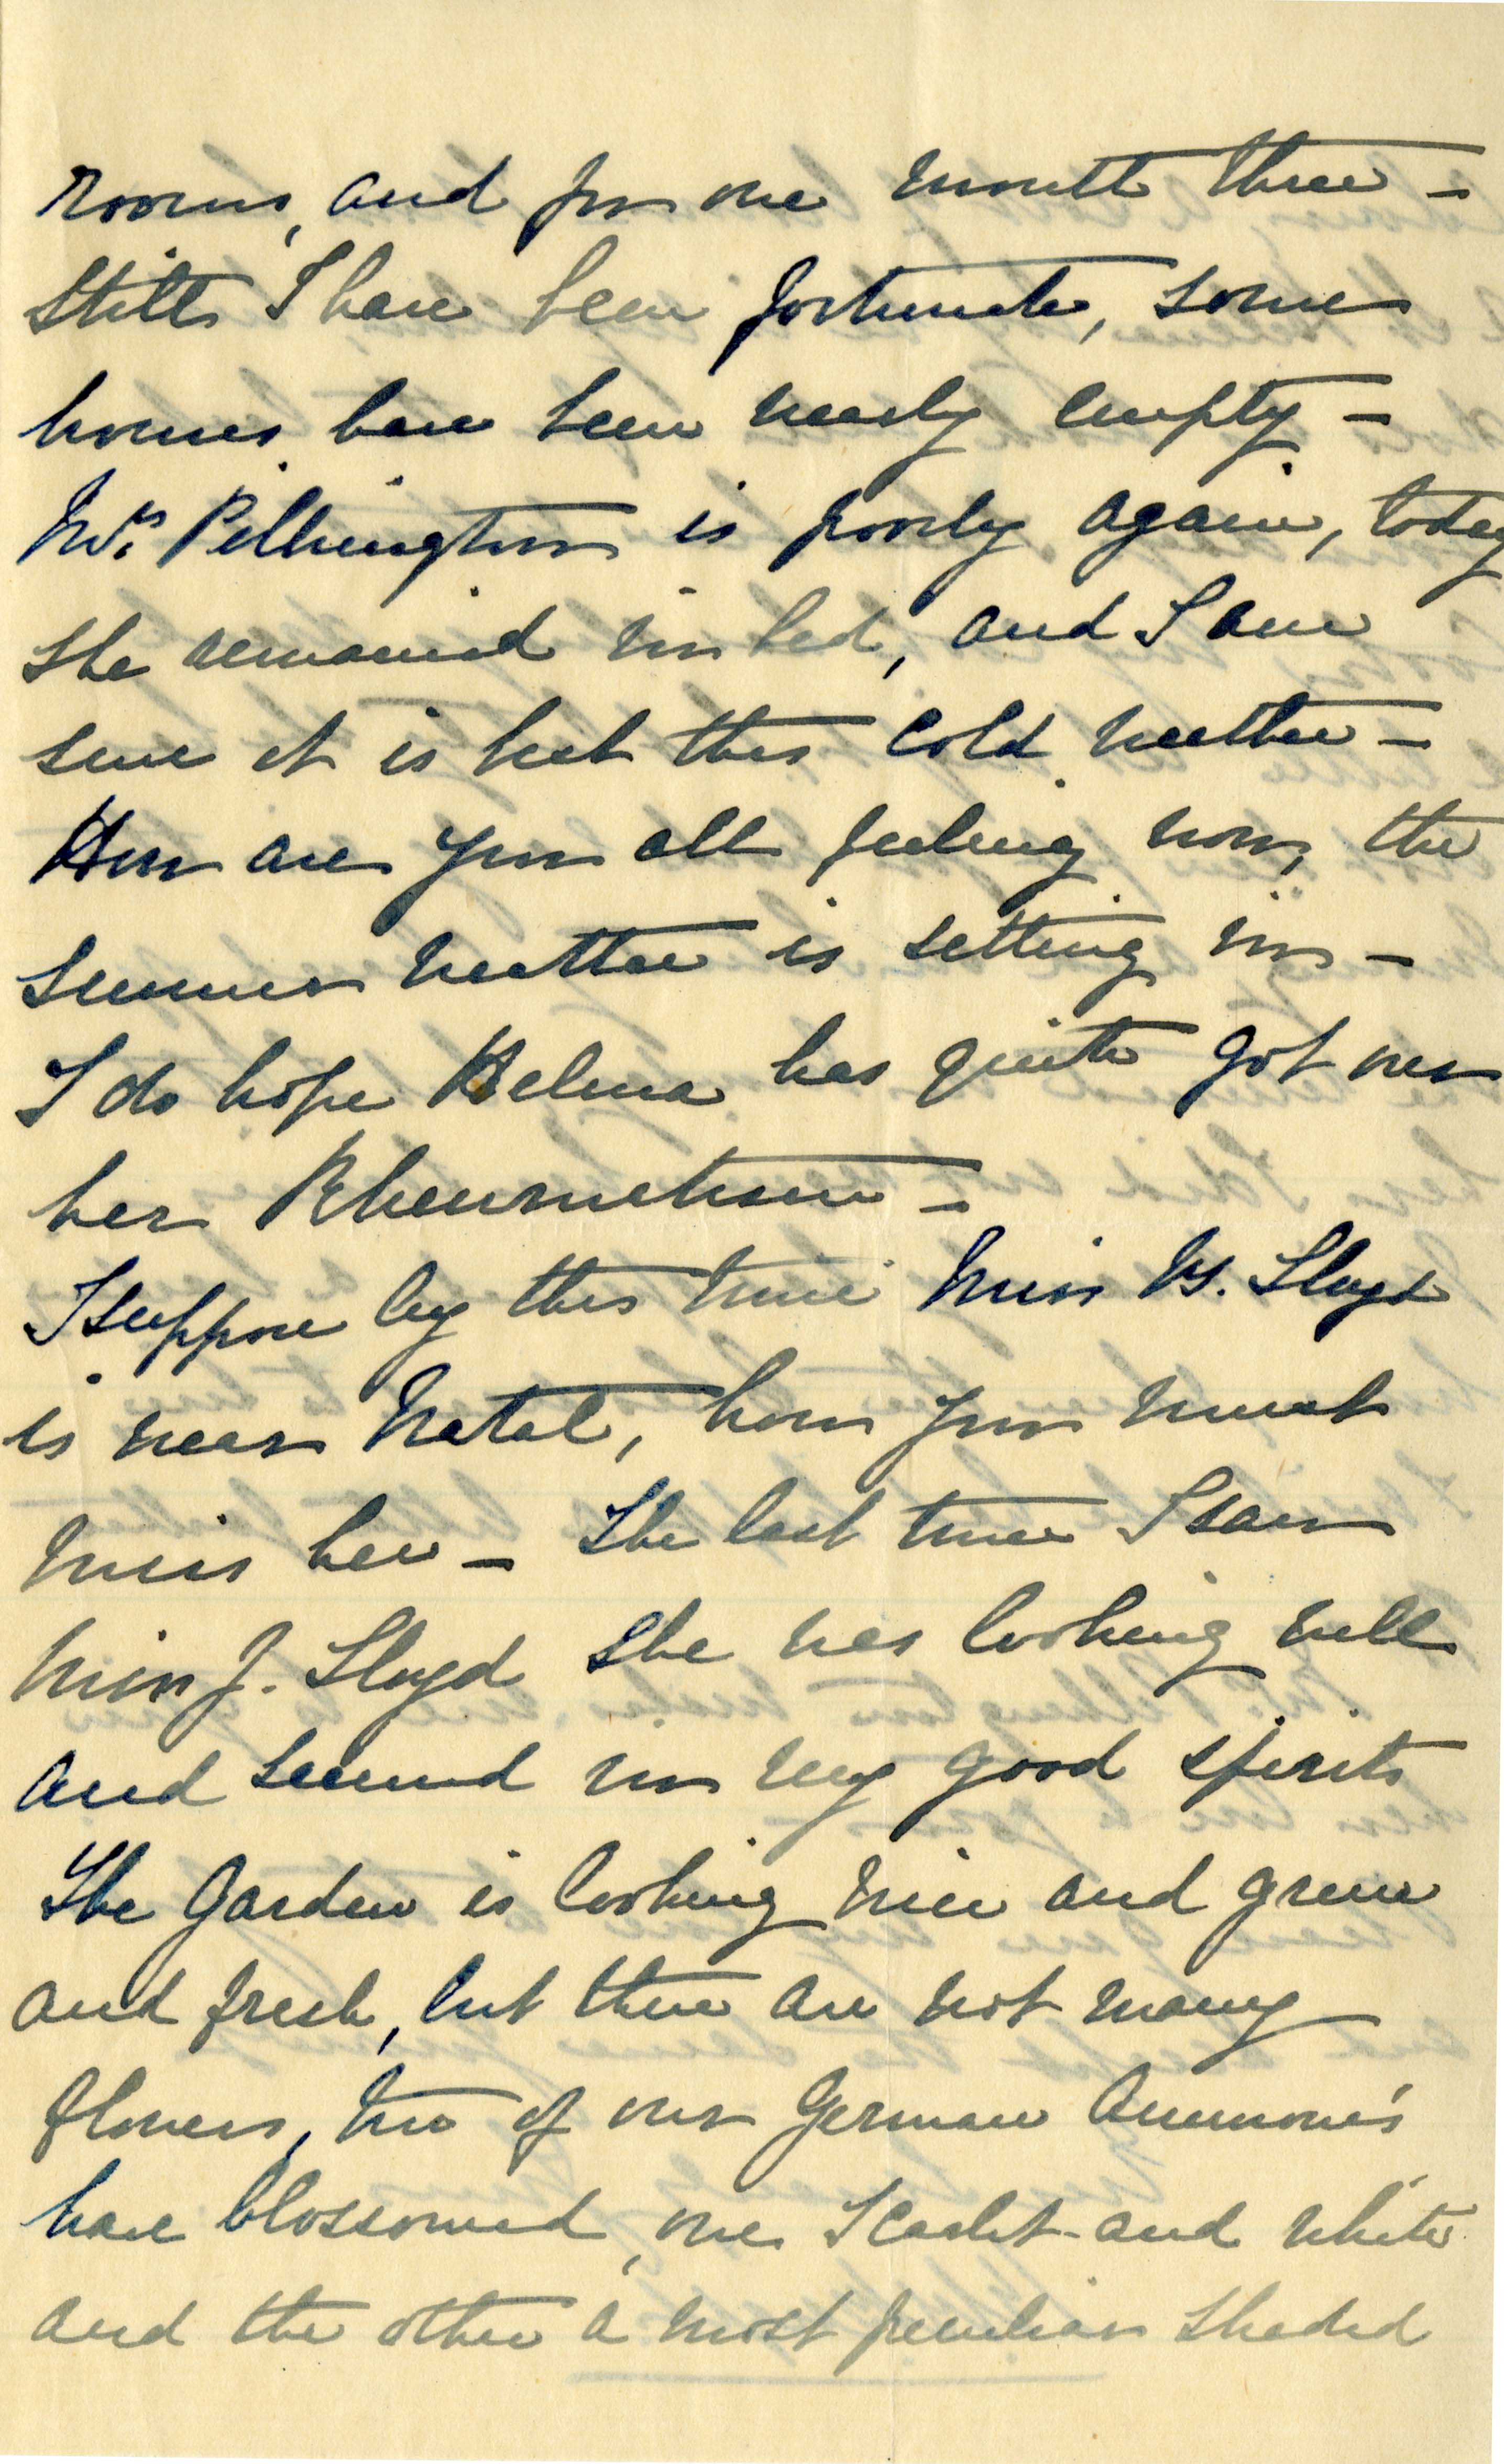 rooms, and for one month three –
Still I have been fortunate, some
houses have been nearly empty –
Mrs. Pilkington is poorly again, today
she remained in bed, and I am
sure it is best this cold weather –
How are you all feeling now, the
summer weather is setting in –
I do hope Helma has quite got over
her Rheumatism –
I suppose by this time Miss Lloyd
is near Natal, how you must
miss her – The last time I saw
Miss J. Lloyd she was looking well
and seemed in very good spirits
The Garden is looking nice and green
and fresh, but there are not many
flowers, two of our German Anemone's
have blossomed, one Scarlet and white
and the other a most peculiar shaded